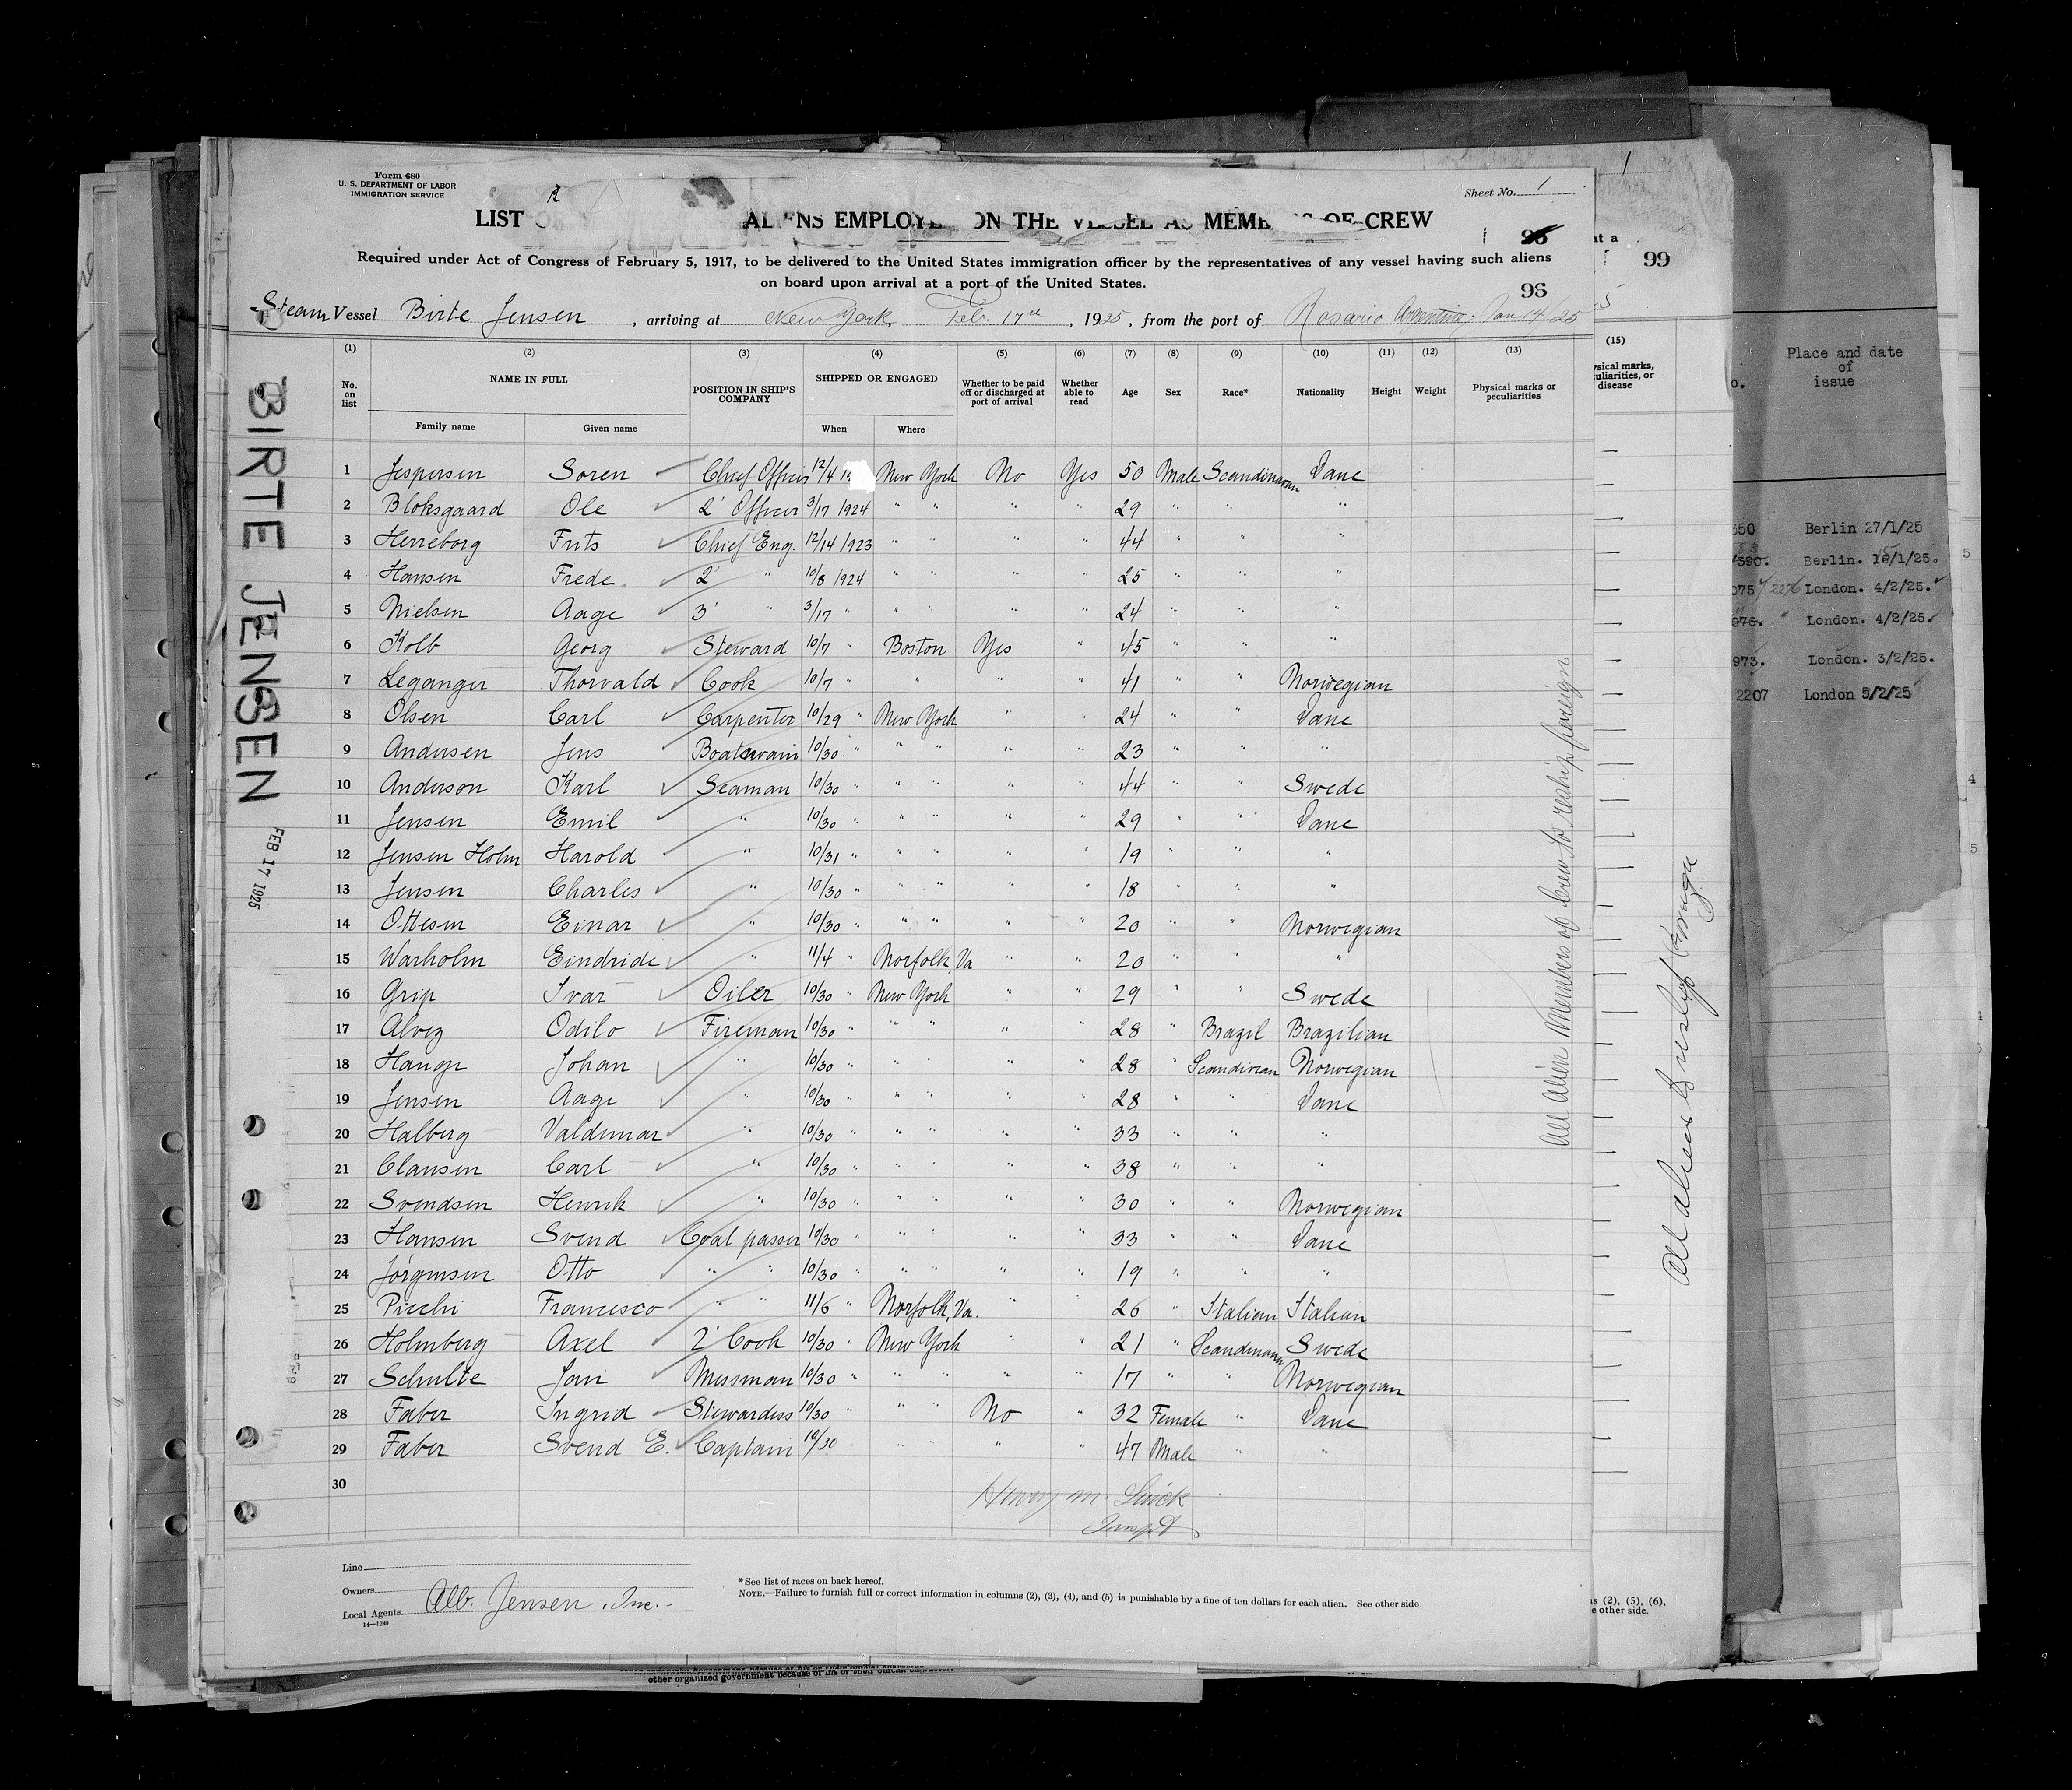 Form 680
U. S. DEPARTMENT OF LABOR
IMMIGRATION SERVICE
Sheet No. 1
LIST ALIENS EMPLOYE ON THE VESSEL AS MEMBE OF CREW
95
Required under Act of Congress of February 5, 1917, to be delivered to the United States immigration officer by the representatives of any vessel having such aliens
on board upon arrival at a port of the United States.
96
Steam Vessel Birte Jensen, arriving at New York, Feb. 17th, 1925, from the port of Rosario Argentina. Jan 14/25
(1) (2) (3) (4) (5) (6) (7) (8) (9) (10) (11) (12) (13)
No. on list NAME IN FULL POSITION IN SHIP'S COMPANY SHIPPED OR ENGAGED Whether to be paid off or discharged at port of arrival Whether able to read Age Sex Race* Nationality Height Weight Physical marks or peculiarities
Family name Given name When Where
1 Jespersen Soren Chief Officer 12/4 New York No Yes 50 Male Scandinavian Dane
2 Bloksgaard Ole 2' Officer 3/17 1924 " " " " 29 " " "
3 Herreborg Frits Chief Eng. 12/14 1923 " " " " 44 " " "
4 Hansen Frede 2' " 10/8 1924 " " " " 25 " " "
5 Nielsen Aage 3' " 3/17 " " " " " 24 " " "
6 Kolb Georg Steward 10/7 " Boston Yes " 45 " " "
7 Leganger Thorvald Cook 10/7 " " " " 41 " " Norwegian
8 Olsen Carl Carpenter 10/29 " New York " " 24 " " Dane
9 Andersen Jens Boatswain 10/30 " " " " " 23 " " "
10 Anderson Karl Seaman 10/30 " " " " " 44 " " Swede
11 Jensen Emil " 10/30 " " " " " 29 " " Dane
12 Jensen Holm Harold " 10/31 " " " " " 19 " " "
13 Jensen Charles " 10/30 " " " " " 18 " " "
14 Ottesen Einar " 10/30 " " " " " 20 " " Norwegian
15 Warholm Eindride " 11/4 " Norfolk, Va " " 20 " " "
16 Grip Ivar Oiler 10/30 " New York " " 29 " " Swede
17 Alvez Odilo Fireman 10/30 " " " " " 28 " Brazil Brazilian
18 Hauge Johan " 10/30 " " " " 28 " Scandivian Norwegian
19 Jensen Aage " 10/30 " " " " " 28 " " Dane
20 Halberg Valdemar " 10/30 " " " " " 33 " " "
21 Clausen Carl " 10/30 " " " " " 38 " " "
22 Svendsen Henrik " 10/30 " " " " " 30 " " Norwegian
23 Hansen Svend Coal passer 10/30 " " " " " 33 " " Dane
24 Jørgensen Otto " " 10/30 " " " " " 19 " " "
25 Picchi Francesco " " 11/6 " Norfolk, Va. " " 26 " Italian Italian
26 Holmberg Axel 2' Cook 10/30 " New York " " 21 " Scandinavn Swede
27 Schulte Jan Messman 10/30 " " " " " 17 " " Norwegian
28 Faber Ingrid Stewardess 10/30 " " " No " 32 Female " Dane
29 Faber Svend E. Captain 10/30 " " " " 47 Male " "
30
Henry M.
Line
Owners
Local Agents Alb. Jensen, Inc.
14—1240
*See list of races on back hereof.
NOTE.—Failure to furnish full or correct information in columns (2), (3), (4), and (5) is punishable by a fine of ten dollars for each alien. See other side.
BIRTE JENSEN
FEB 17 1925
All Alien Members of Crew to reship foreign
1
at a
99
(15)
ysical marks,
uliarities, or
disease
All aliens to reship foreign
s (2), (5), (6),
e other side.
Place and date
of
issue
o.
350 Berlin 27/1/25
390. Berlin. 1/25.
075 London. 4/2/25.
076. London. 4/2/25.
973. London. 3/2/25.
2207 London 5/2/25
5
4
5
other organized government because of his or their official character